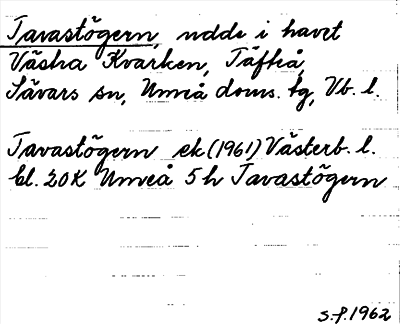 Tavastögern, udde i havet
Västra Kvarken, Täfteå,
Sävars sn, Umeå doms. tg, Vb. l.
Tavastögern ek (1961) Västerb. l.
bl. 20K Umeå 5h Tavastögern
S.f. 1962